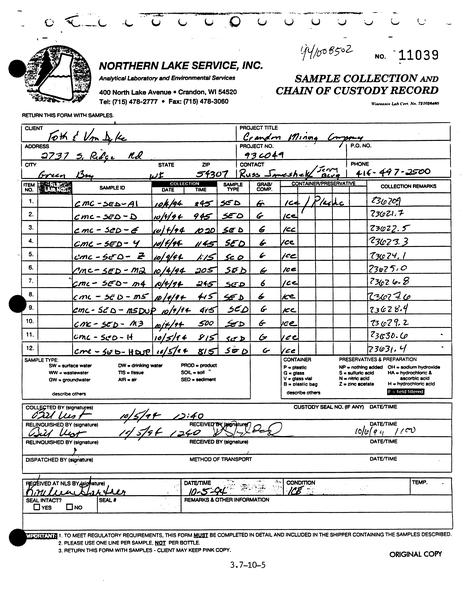 94/008502
NO. 11039
NORTHERN LAKE SERVICE, INC.
Analytical Laboratory and Environmental Services
400 North Lake Avenue • Crandon, WI 54520
Tel: (715) 478-2777 • Fax: (715) 478-3060
SAMPLE COLLECTION AND
CHAIN OF CUSTODY RECORD
Wisconsin Lab Cert. No. 721026460
RETURN THIS FORM WITH SAMPLES.
CLIENT
Foth & Van Dyke
PROJECT TITLE
Crandon Mining Company
ADDRESS
2737 S. Ridge Rd
PROJECT NO.
93C049
P.O. NO.
CITY STATE ZIP
Green Bay WI 54307
CONTACT
Russ / Jerry
PHONE
414-497-2500
ITEM NO. SAMPLE ID COLLECTION DATE TIME SAMPLE TYPE GRAB/COMP. CONTAINER/PRESERVATIVE COLLECTION REMARKS
1. CMC-SED-A1 10/4/94 845 SED G ICE / Plastic
2. CMC-SED-D 10/4/94 945 SED G ICE 23621.7
3. CMC-SED-E 10/4/94 1020 SED G ICE 23622.5
4. CMC-SED-4 10/4/94 1145 SED G ICE 23623.3
5. CMC-SED-Z 10/4/94 115 SED G ICE 23624.1
6. CMC-SED-M2 10/4/94 205 SED G ICE 23625.0
7. CMC-SED-M4 10/4/94 245 SED G ICE 23626.8
8. CMC-SED-M5 10/4/94 415 SED G ICE 23627.6
9. CMC-SED-M5DUP 10/4/94 415 SED G ICE 23628.4
10. CMC-SED-M3 10/4/94 500 SED G ICE 23629.2
11. CMC-SED-H 10/5/94 815 SED G ICE 23630.6
12. CMC-SED-HDUP 10/5/94 815 SED G ICE 23631.4
SAMPLE TYPE:
SW = surface water DW = drinking water PROD = product
WW = wastewater TIS = tissue SOIL = soil
GW = groundwater AIR = air SED = sediment
describe others
CONTAINER
P = plastic
G = glass
V = glass vial
B = plastic bag
describe others
PRESERVATIVES & PREPARATION
NP = nothing added OH = sodium hydroxide
S = sulfuric acid HA = hydrochloric & ascorbic acid
N = nitric acid
Z = zinc acetate H = hydrochloric acid
F = field filtered
COLLECTED BY (signature)
10/5/94 12:40
CUSTODY SEAL NO. (IF ANY) DATE/TIME
RELINQUISHED BY (signature)
10/5/94 1240
RECEIVED BY (signature)
DATE/TIME
RELINQUISHED BY (signature)
RECEIVED BY (signature)
DATE/TIME
DISPATCHED BY (signature)
METHOD OF TRANSPORT
DATE/TIME
RECEIVED AT NLS BY (signature)
DATE/TIME
10-5-94
CONDITION
ICE
TEMP.
SEAL INTACT?
YES NO
SEAL #
REMARKS & OTHER INFORMATION
IMPORTANT: 1. TO MEET REGULATORY REQUIREMENTS, THIS FORM MUST BE COMPLETED IN DETAIL AND INCLUDED IN THE SHIPPER CONTAINING THE SAMPLES DESCRIBED.
2. PLEASE USE ONE LINE PER SAMPLE, NOT PER BOTTLE.
3. RETURN THIS FORM WITH SAMPLES - CLIENT MAY KEEP PINK COPY.
ORIGINAL COPY
3.7-10-5